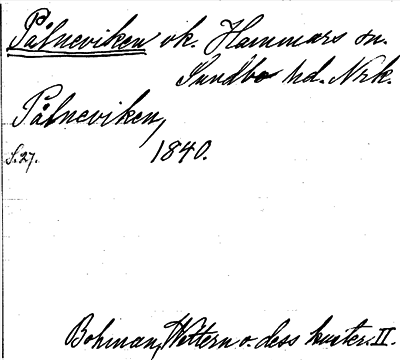 Pålneviken ok. Hammars sn.
Sundbo hd. Nrk.
Pålneviken,
S. 27. 1840.
Bohman, Wettern o. dess kuster. II.